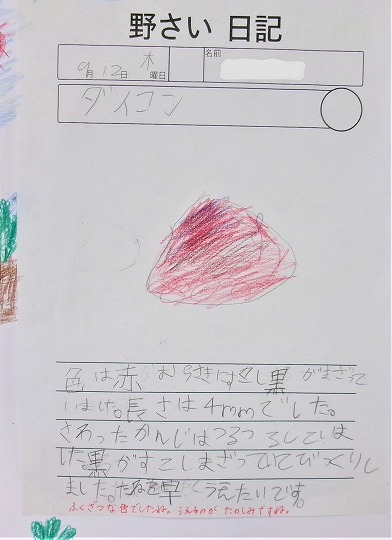 野さい 日記
9月12日 木曜日 名前
ダイコン
色は赤 むらさき 黒がまざって
いました。長さは4mmでした。
さわったかんじはつるつるしていま
した。黒がすこしまざっていてびっくりし
ました。たねを早くうえたいです。
ふくざつな色でしたね。うえるのが たのしみですね。